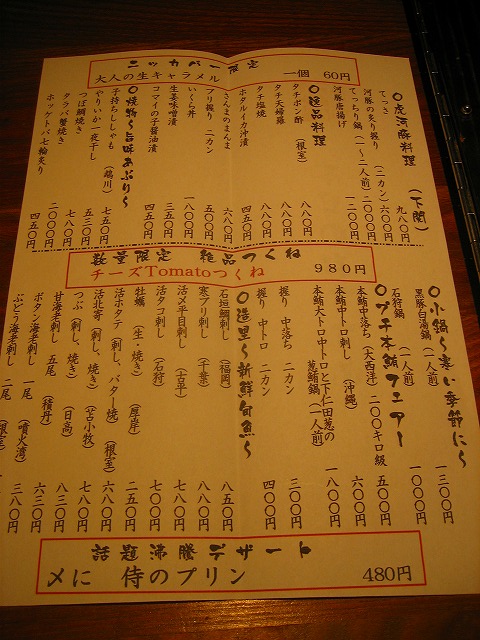 ニッカバー限定
大人の生キャラメル 一個 60円
○虎河豚料理 (下関)
てっさ 九八〇円
河豚の炙り握り (二カン) 六〇〇円
てっちり鍋 (一〜二人前) 二〇〇〇円
河豚唐揚げ 一二〇〇円
○逸品料理
タチポン酢 (根室) 八八〇円
タチ天婦羅 八八〇円
タチ塩焼 八八〇円
ホタルイカ沖漬 四五〇円
さんまのまんま 六八〇円
ブリ握り 二カン 五〇〇円
いくら丼 一八〇〇円
生茎味噌漬 三五〇円
コマイの子醤油漬 四五〇円
○焼物〜旨味あぶり〜
子持ちししゃも (鵡川) 七五〇円
やりいか一夜干し 五三〇円
つぼ鯛焼き 七八〇円
タラバ蟹焼き 二〇〇〇円
ホッケトバ七輪炙り 四五〇円
数量限定 絶品つくね
チーズTomatoつくね 980円
○小鍋〜寒い季節に〜
黒豚白湯鍋 (一人前) 一三〇〇円
石狩鍋 (一人前) 一〇〇〇円
○プチ本鮪フェアー
本鮪中落ち (大西洋) 二〇〇キロ級 五〇〇円
本鮪中トロ刺し (沖縄) 六〇〇円
本鮪大トロ中トロと下仁田葱の葱鮪鍋 (一人前) 一八〇〇円
握り 中落ち 二カン 三〇〇円
握り 中トロ 二カン 四〇〇円
○造里〜新鮮旬魚〜
石垣鯛刺し (福岡) 八五〇円
寒ブリ刺し (千葉) 八八〇円
活〆平目刺し (古平) 七八〇円
活タコ刺し (石狩) 七〇〇円
牡蠣 (生・焼き) (厚岸) 二五〇円
活ホタテ (刺し、バター焼) (根室) 六八〇円
活北寄 (刺し、焼き) (苫小牧) 七八〇円
つぶ (刺し、焼き) (日高) 七八〇円
甘海老刺し 五尾 八三〇円
ボタン海老刺し 二尾 (積丹) 六三〇円
ぶどう海老刺し 一尾 (噴火湾) 三八〇円
話題沸騰デザート
〆に 侍のプリン 480円